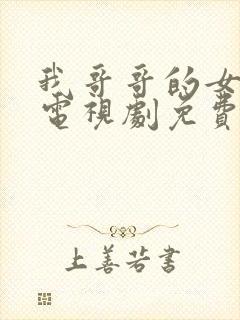 我哥哥的女
電視劇免費
上善若書